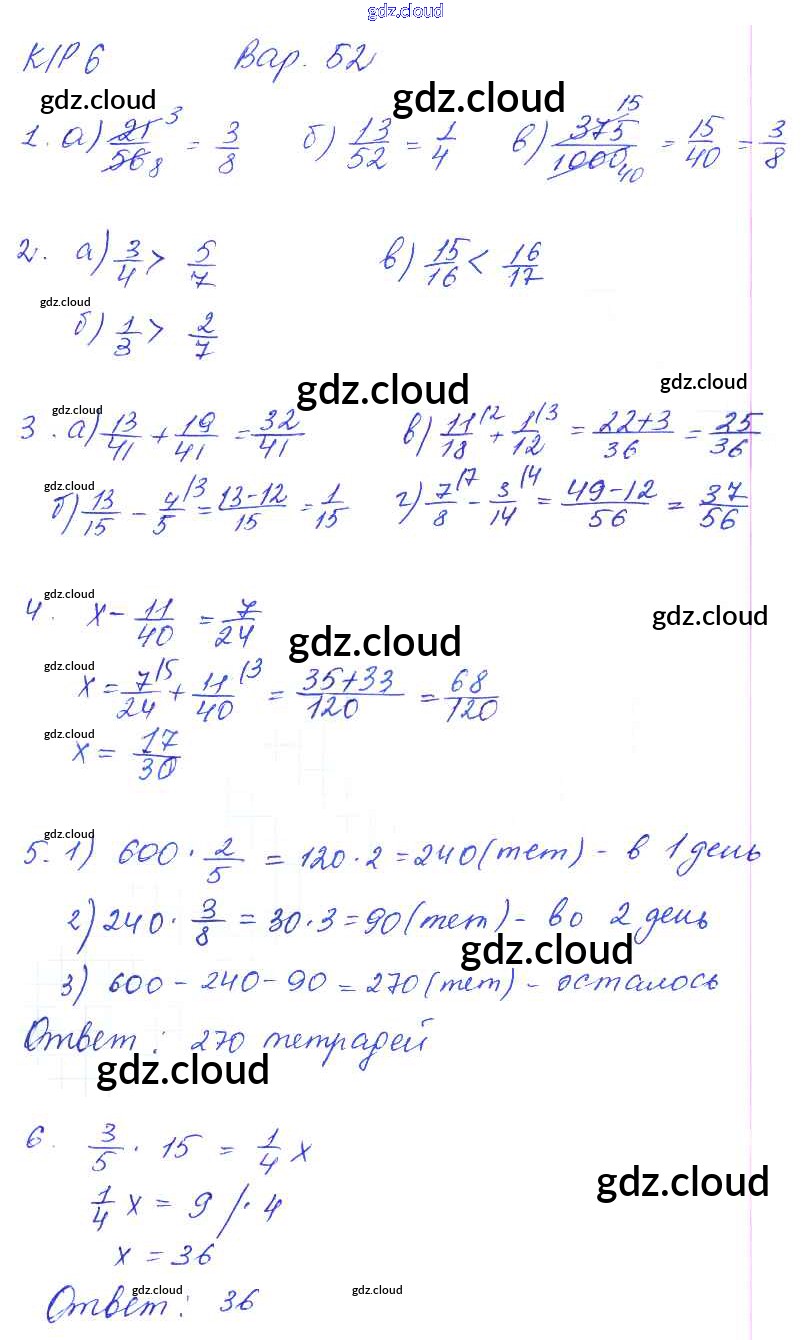 gdz.cloud
К/Р 6 Вар. 52
gdz.cloud gdz.cloud
1. а) 21/56 3 8 = 3/8 б) 13/52 = 1/4 в) 375/1000 15 40 = 15/40 = 3/8
gdz.cloud gdz.cloud
2. а) 3/4 > 5/7 в) 15/16 < 16/17
gdz.cloud
б) 1/3 > 2/7
gdz.cloud gdz.cloud
gdz.cloud
3. а) 13/41 + 19/41 = 32/41 в) 11/18 |2 + 1/12 |3 = 22+3/36 = 25/36
gdz.cloud
б) 13/15 - 4/5 |3 = 13-12/15 = 1/15 г) 7/8 |7 - 3/14 |4 = 49-12/56 = 37/56
gdz.cloud
4. x - 11/40 = 7/24
gdz.cloud gdz.cloud
gdz.cloud
x = 7/24 |5 + 11/40 |3 = 35+33/120 = 68/120
gdz.cloud
x = 17/30
gdz.cloud
5. 1) 600 · 2/5 = 120 · 2 = 240 (тет) - в 1 день
2) 240 · 3/8 = 30 · 3 = 90 (тет) - во 2 день
gdz.cloud
3) 600 - 240 - 90 = 270 (тет) - осталось
Ответ: 270 тетрадей
gdz.cloud
6. 3/5 · 15 = 1/4 x
gdz.cloud
1/4 x = 9 /· 4
x = 36
gdz.cloud gdz.cloud
Ответ: 36